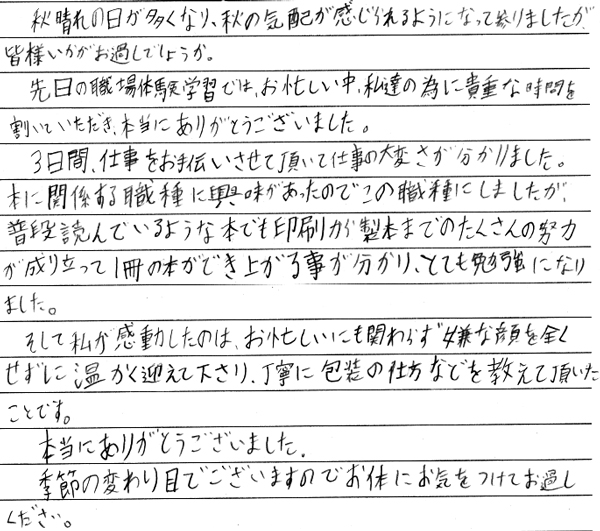 秋晴れの日が多くなり、秋の気配が感じられるようになって参りましたが、
皆様いかがお過しでしょうか。
先日の職場体験学習では、お忙しい中、私達の為に貴重な時間を
割いていただき、本当にありがとうございました。
3日間、仕事をお手伝いさせて頂いて仕事の大変さが分かりました。
本に関係する職種に興味があったのでこの職種にしましたが、
普段読んでいるような本でも印刷から製本までのたくさんの努力
が成り立って1冊の本ができ上がる事が分かり、とても勉強になり
ました。
そして私が感動したのは、お忙しいにも関わらず嫌な顔を全く
せずに温かく迎えて下さり、丁寧に包装の仕方などを教えて頂いた
ことです。
本当にありがとうございました。
季節の変わり目でございますのでお体にお気をつけてお過し
ください。